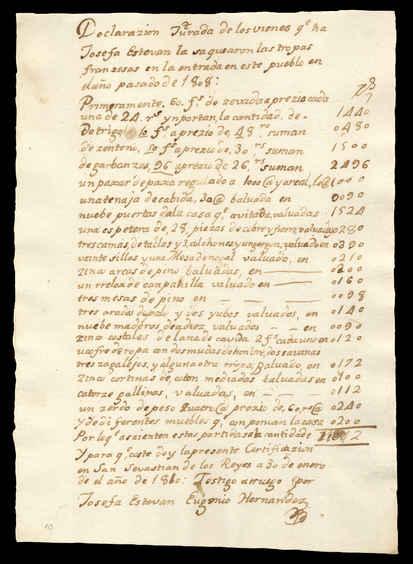 Declarazion Jurada de los vienes qe ha
Josefa Estevan la saquearon las tropas
franzesas en la entrada en este pueblo en
el año pasado de 1808:
Primeramente. 60. fs de zevada aprezio cada
una de 24. rs ynportan la cantidad. de - 1440
De trigo 10 fs a prezio de 48 rs suman 0480
de zenteno, fs a prezio de, 30 rs suman 1500
de garbanzos, 96 a prezio de 26, rs suman 2496
un pajar de paja regulado a 1000 @ y a real, 1000
una tenaja de cabida, 30 @ baluada en 0090
nuebe puertas de la casa qe avitaba, valuadas 1524
una espetera de, 25, piezas de cobre y fierro, valuada 0280
tres camas, de tables y 2, colchones y un gergon, valuado en 0390
vainte sillas y una Mesa de nogal valuado, en 0210
zinco arcas de pino baluadas, en 0200
un relox de canpanilla valuado en 0160
tres mesas de pino en 0098
tres arados y seis yubos valuados, en 0140
nuebe maderos de valuados - - en 0090
zinco costales de lana de cavida 2 fs cada uno en 0120
un cofre de ropa con dos mudas de honbre, dos savanas
tres zagalejos, y alguna otra rropa, Baluado, en 0172
zinco cortinas de, coton mediadas baluadas en 0100
catorze gallinas, valuadas, en - 0112
un zerdo de peso quatro @ prezio de, 60, rs @ 0240
y de diferentes muebles qe conponian la casa 0200
Por lo qe aszienten estas partidas a la cantidad
Y para qe coste doy la presente Certificazion
en San Sevastian de los Reyes a 30 de enero
de el año de 1810: Testigo a rruego por
Josefa Estevan Eugenio Hernandez